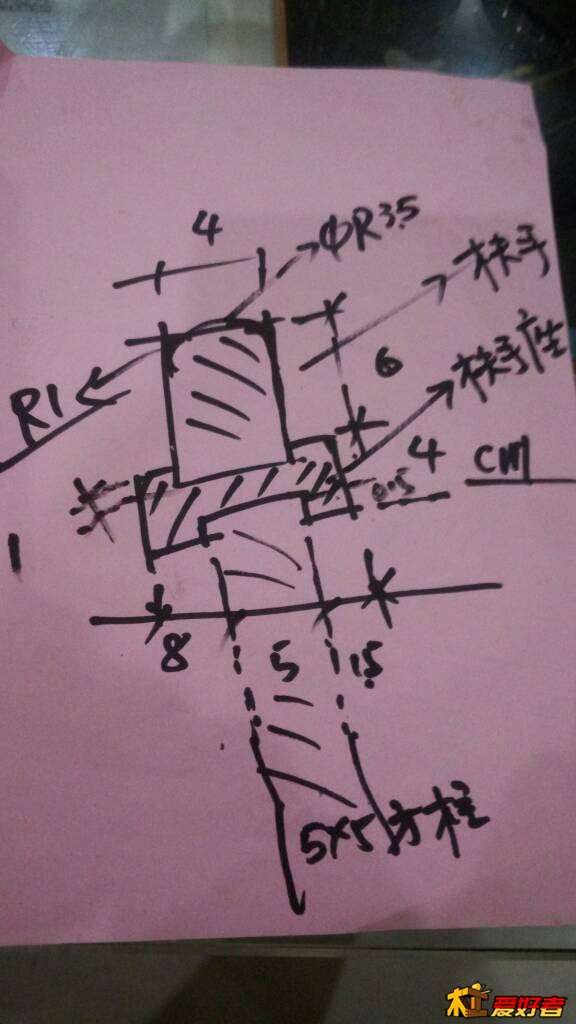 4
ΦR3.5
扶手
R1
6
扶手座
4
cm
0.5
1
8
5
1.5
5×5方柱
木工爱好者